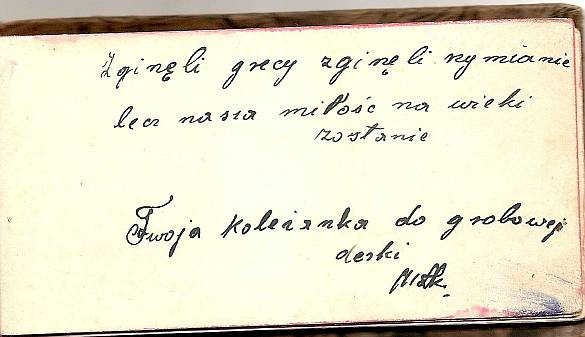 Zginęli grecy zginęli rymianie
lecz nasza miłość na wieki
zostanie
Twoja koleianka do grobowej
deski